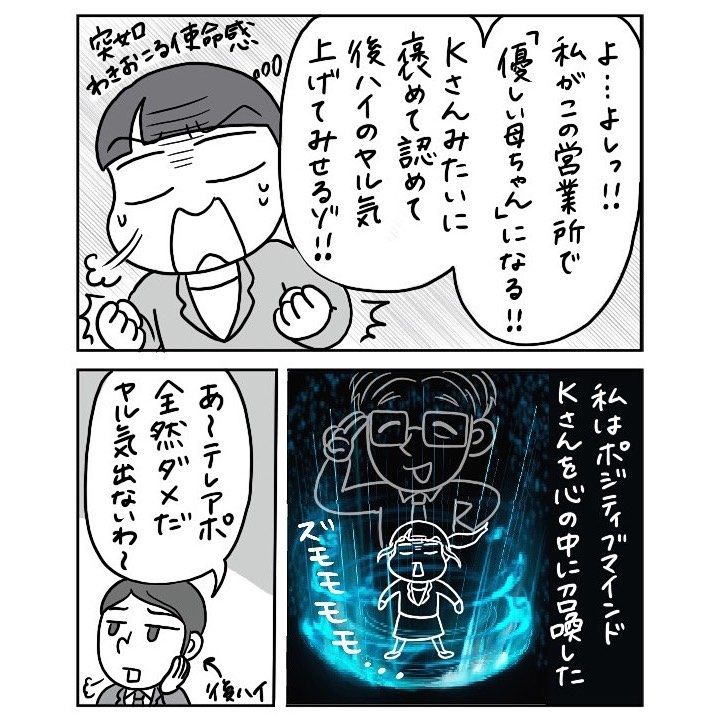 よ…よしっ!!
私がこの営業所で
「優しい母ちゃん」になる!!
Kさんみたいに
褒めて認めて
後ハイのヤル気
上げてみせるゾ!!
突如
わきおこる使命感
私はポジティブマインド
Kさんを心の中に召喚した
ズモモモモ...
あ〜テレアポ
全然ダメだ
ヤル気出ないわ〜
後ハイ